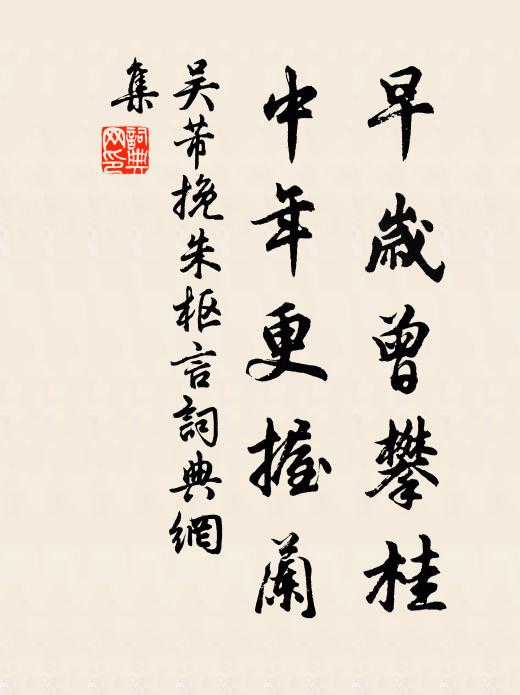 早歲曾攀桂
中年更握蘭
吴芾挽朱枢言詞典網
集
詞典網印